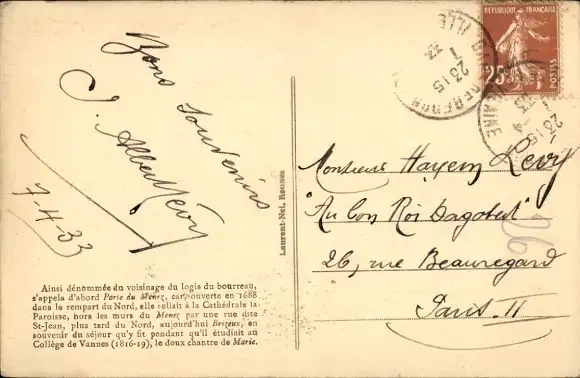 Bons Souvenirs
J. Albert Lévy
7-4-33
Ainsi dénommée du voisinage du logis du bourreau,
s'appela d'abord Porte du Menez, car ouverte en 1688
dans le rempart du Nord, elle reliait à la Cathédrale la
Paroisse, hors les murs du Menez par une rue dite
St-Jean, plus tard du Nord, aujourd'hui Brizeux, en
souvenir du séjour qu'y fit pendant qu'il étudiait au
Collège de Vannes (1816-19), le doux chantre de Marie.
Laurent-Nel, Rennes
REPUBLIQUE FRANÇAISE
25
POSTES
ILLE
23 15
VILAINE
23 15
Monsieur Hayem Levy
"Au bon Roi Dagobert"
26, rue Beauregard
Paris II